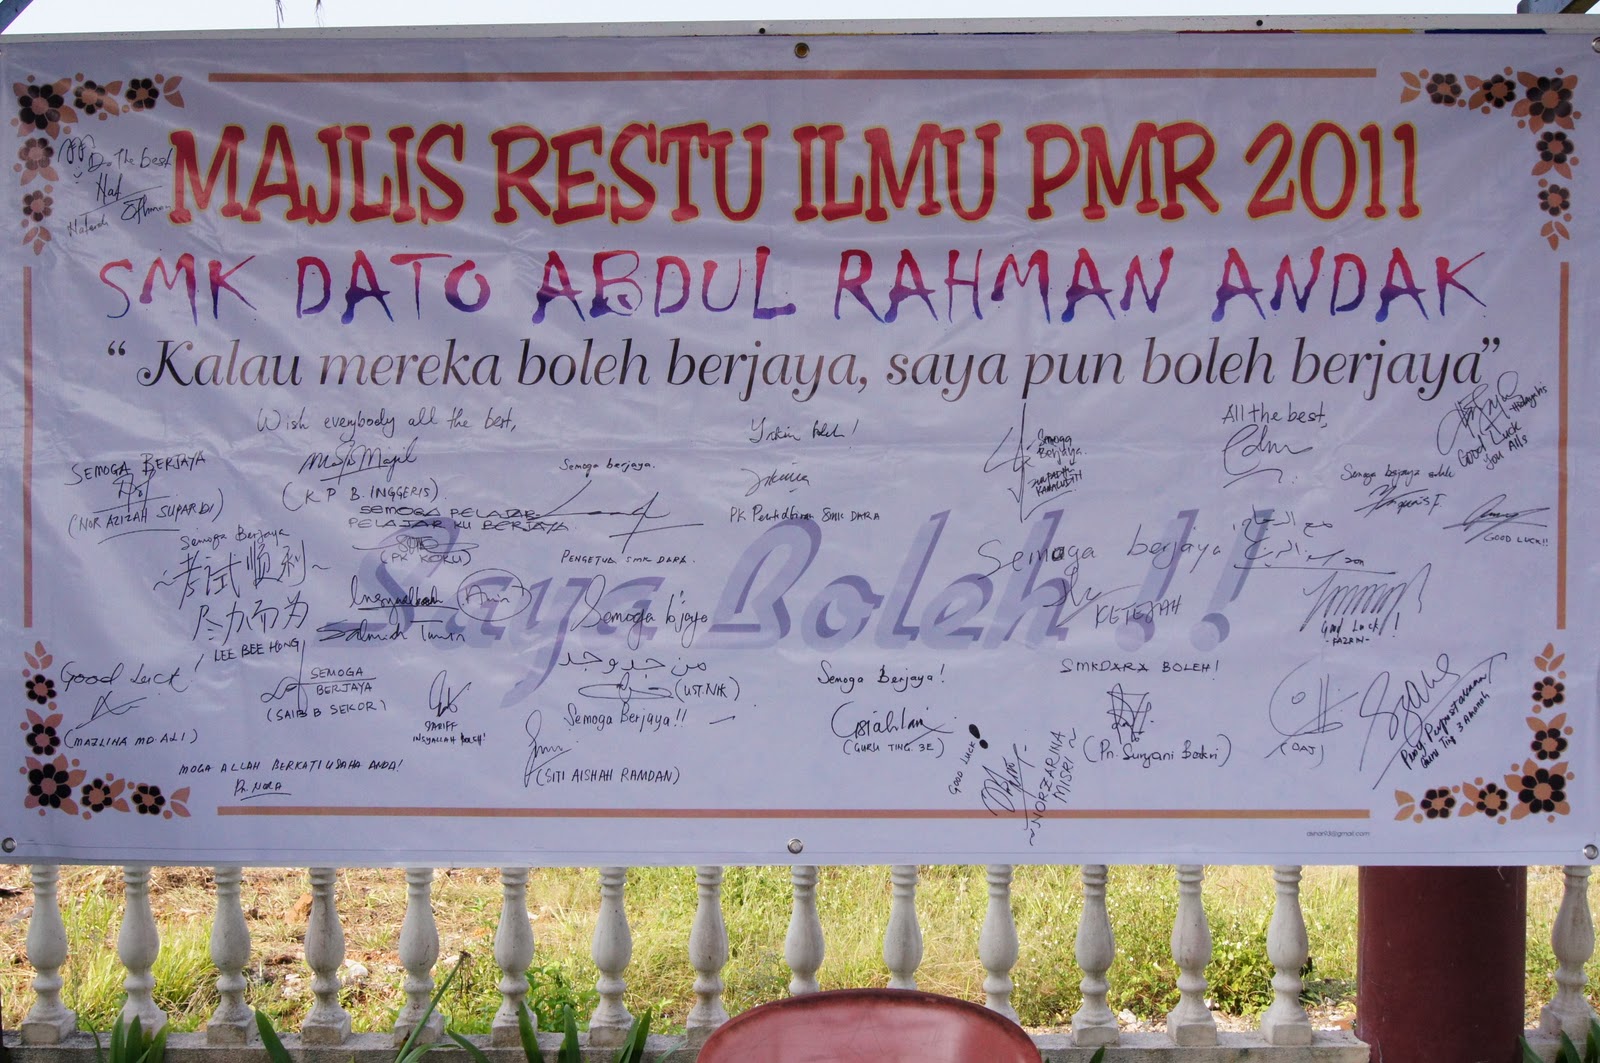 MAJLIS RESTU ILMU PMR 2011
SMK DATO ABDUL RAHMAN ANDAK
“ Kalau mereka boleh berjaya, saya pun boleh berjaya”
Saya Boleh !!
Do the best
Wish everybody all the best,
(K P B. INGGERIS)
SEMOGA BERJAYA
(NOR AZIZAH SUPARDI)
SEMOGA PELAJAR-
PELAJAR KU BERJAYA.
(PK KOKU)
Semoga berjaya.
PENGETUA SMK DARA.
Yakin boleh!
SMK DARA
Semoga
Berjaya.
KAMALUDIN
All the best,
Good Luck
You Alls
Semoga berjaya
GOOD LUCK!!
Semoga Berjaya
~考试顺利~
尽力而为!
LEE BEE HONG
Semoga berjaya
KETEJAH
Good Luck!
-FAZAN-
Semoga b'jaya
من جد وجد
(UST. NIK)
Good Luck!
(MAZLINA MD. ALI)
SEMOGA
BERJAYA
(SAIB B SEKOR)
SHARIFF
INSYALLAH BOLEH!
Semoga Berjaya!!
(SITI AISHAH RAMDAN)
MOGA ALLAH BERKATI USAHA ANDA!
Pn. NORA
Semoga Berjaya!
(GURU TING. 3E)
GOOD LUCK!
~NORZARINA
MISRI~
SMKDARA BOLEH!
(Pn. Suryani Bakri)
Guru Ting 3 Amanah